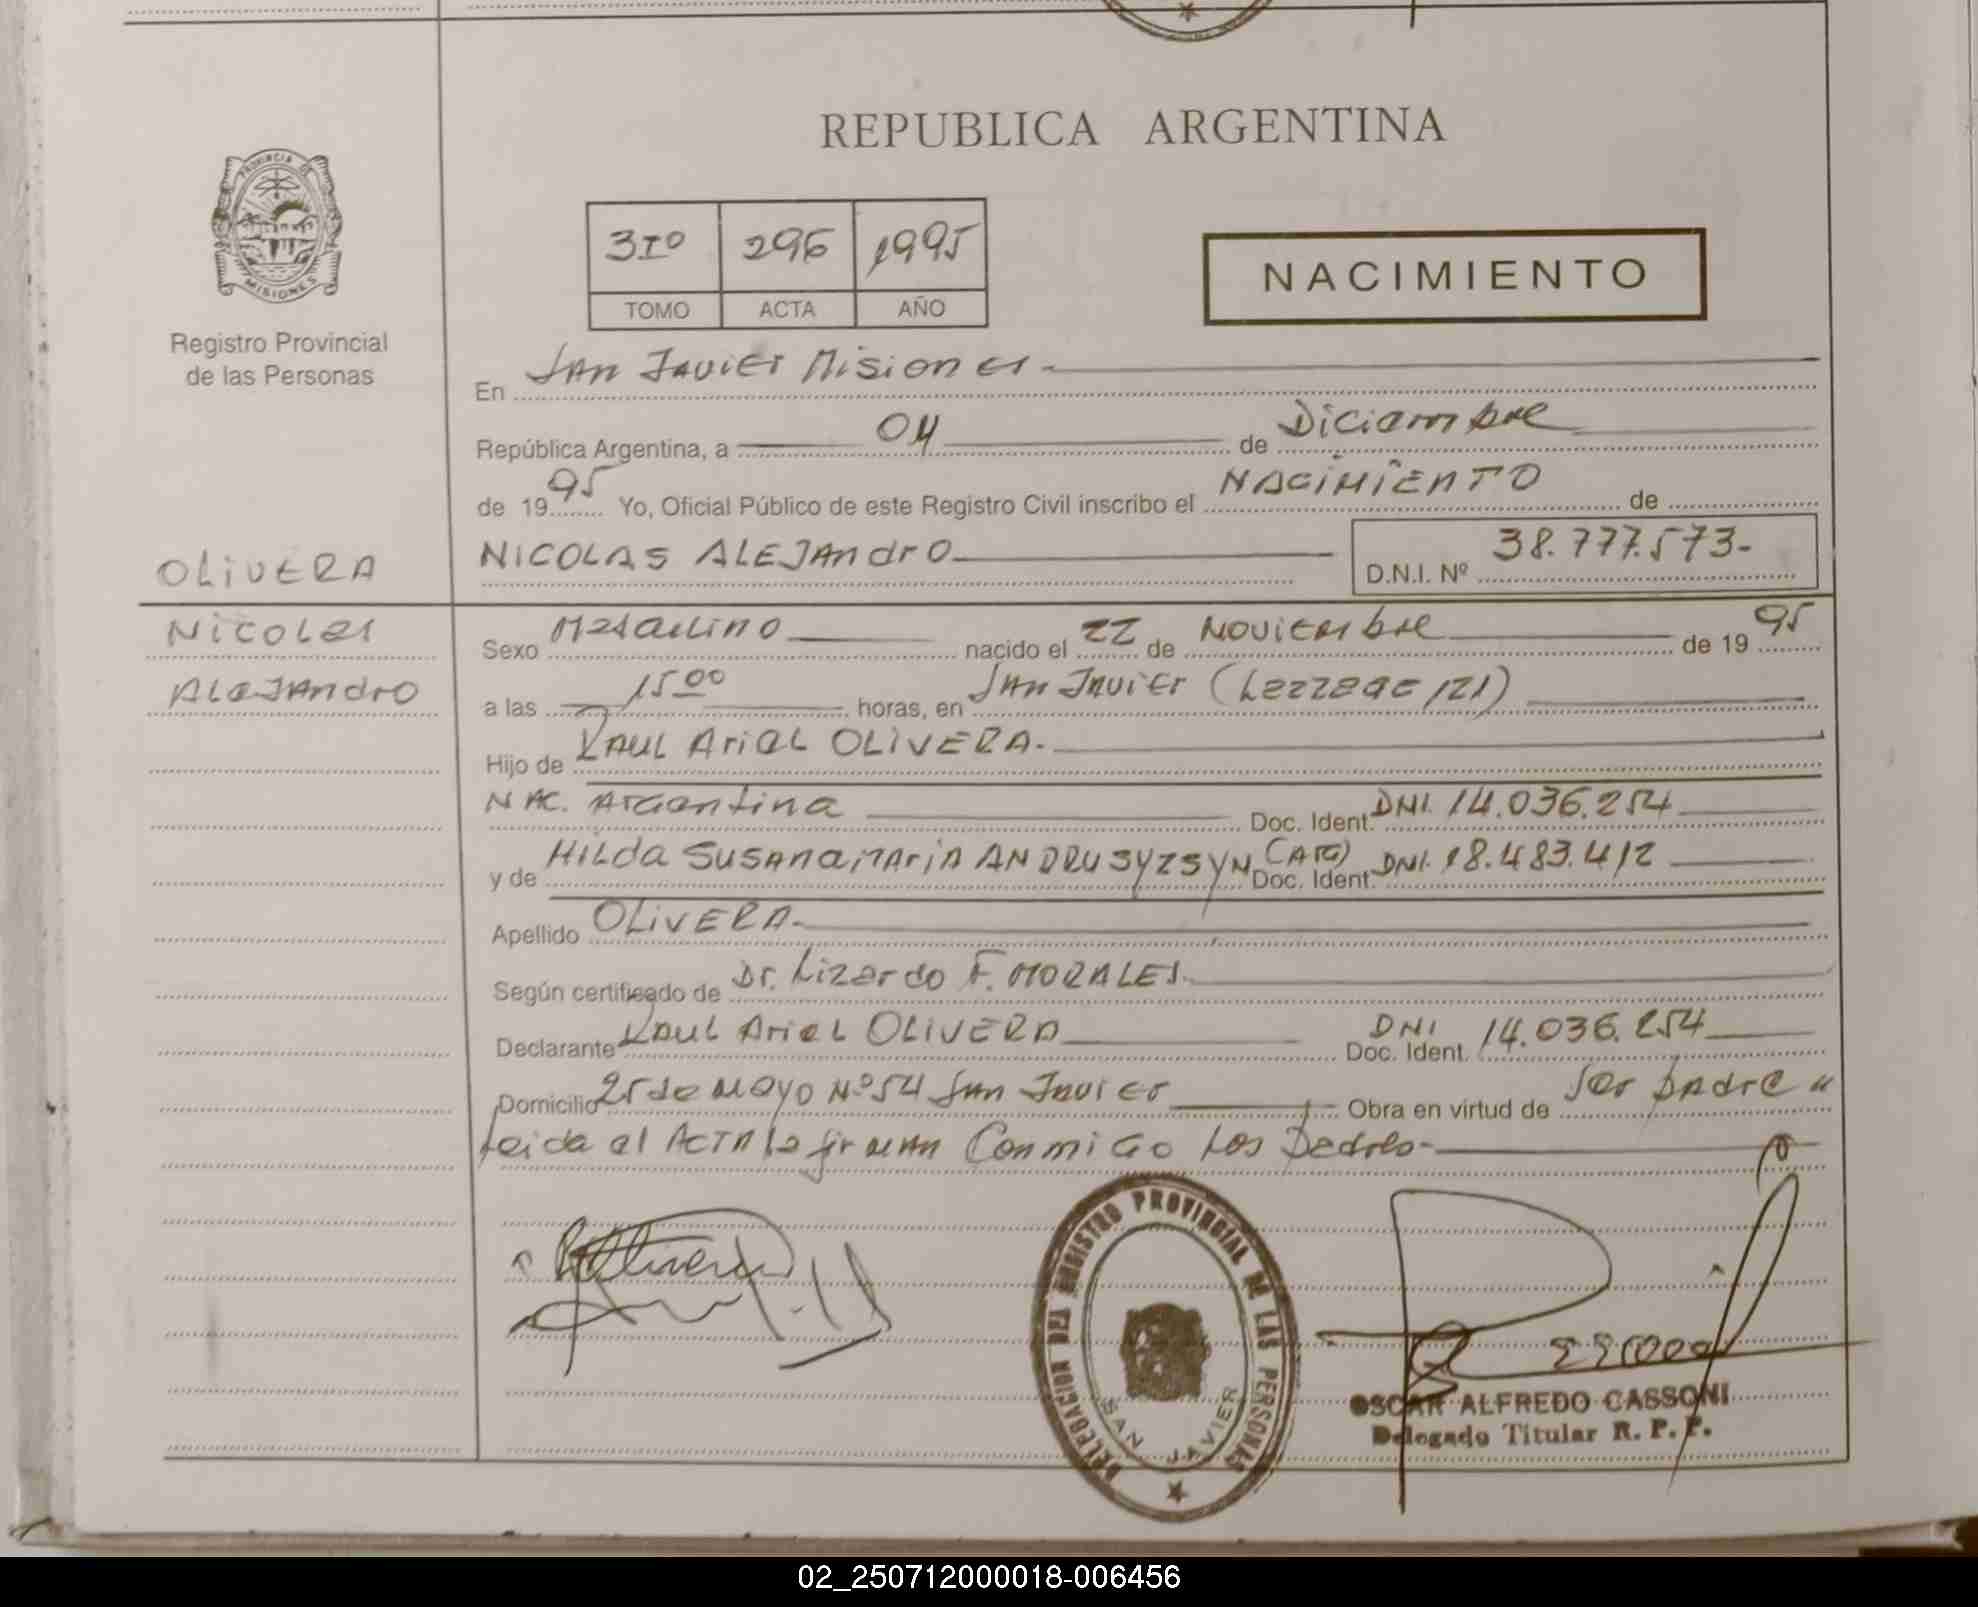 PROVINCIA DE
MISIONES
Registro Provincial
de las Personas
REPUBLICA ARGENTINA
3Iº 296 1995
TOMO ACTA AÑO
NACIMIENTO
En San Javier Misiones
República Argentina, a 04 de Diciembre
de 1995 Yo, Oficial Público de este Registro Civil inscribo el NACIMIENTO de
NICOLAS ALEJAndrO D.N.I. Nº 38.777.573-
OLIVERA
Nicolas
Alejandro
Sexo Masculino nacido el 22 de Noviembre de 1995
a las 15 00 horas, en San Javier
Hijo de Raul Ariel OLIVERA.
NAC. Argentina Doc. Ident. DNI. 14.036.254
y de Hilda SUSANA MARIA ANDRUSYZSYN (ARG) Doc. Ident. DNI. 18.483.412
Apellido OLIVERA
Según certificado de Dr. Lizardo F. MORALES
Declarante Raul Ariel OLIVERA DNI Doc. Ident. 14.036.254
Domicilio 25 de Mayo Nº 54 San Javier Obra en virtud de ser padre
leida el ACTA la firman Conmigo los Padres
DELEGACION DEL REGISTRO PROVINCIAL DE LAS PERSONAS
SAN JAVIER
OSCAR ALFREDO CASSONI
Delegado Titular R. P. P.
02_250712000018-006456